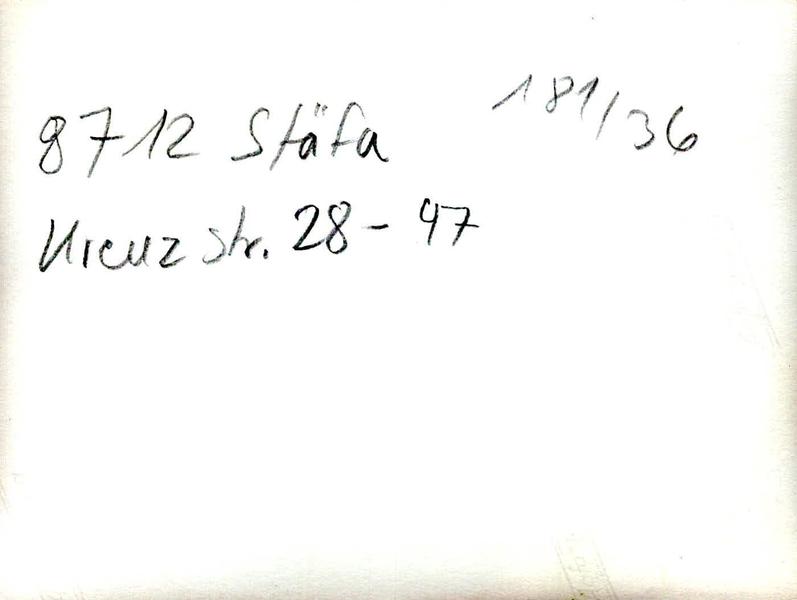 8712 Stäfa 181/36
Kreuzstr. 28 - 47